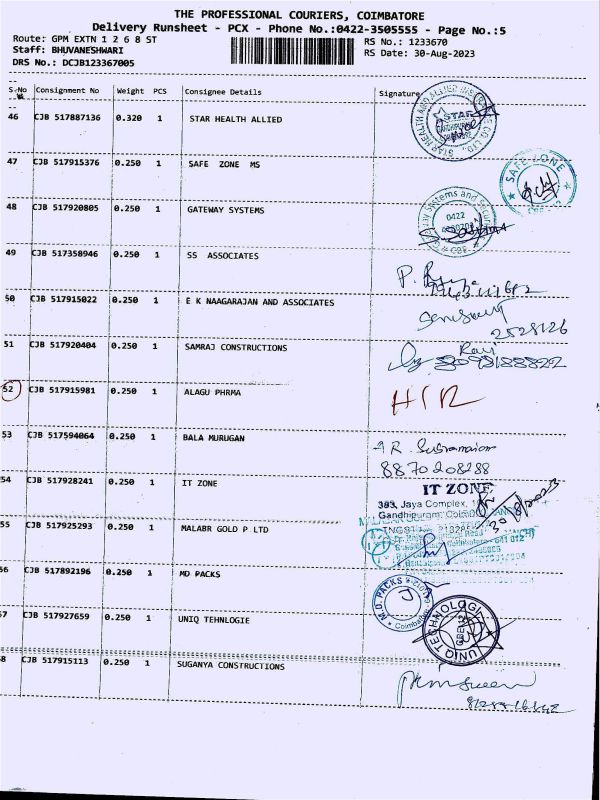 THE PROFESSIONAL COURIERS, COIMBATORE
Delivery Runsheet - PCX - Phone No.:0422-3505555 - Page No.:5
Route: GPM EXTN 1 2 6 8 ST RS No.: 1233670
Staff: BHUVANESHWARI RS Date: 30-Aug-2023
DRS No.: DCJB123367005
S.No Consignment No Weight PCS Consignee Details Signature
46 CJB 517887136 0.320 1 STAR HEALTH ALLIED
STAR
47 CJB 517915376 0.250 1 SAFE ZONE MS
SAFE ZONE
48 CJB 517920805 0.250 1 GATEWAY SYSTEMS
0422
49 CJB 517358946 0.250 1 SS ASSOCIATES
50 CJB 517915022 0.250 1 E K NAAGARAJAN AND ASSOCIATES
2528126
51 CJB 517920404 0.250 1 SAMRAJ CONSTRUCTIONS
Ravi
52 CJB 517915981 0.250 1 ALAGU PHRMA
53 CJB 517594064 0.250 1 BALA MURUGAN
8870208288
54 CJB 517928241 0.250 1 IT ZONE
IT ZONE
383, Jaya Complex,
Gandhipuram,
55 CJB 517925293 0.250 1 MALABR GOLD P LTD
56 CJB 517892196 0.250 1 MD PACKS
M.D. PACKS
57 CJB 517927659 0.250 1 UNIQ TEHNLOGIE
UNIQ TECHNOLOGI
58 CJB 517915113 0.250 1 SUGANYA CONSTRUCTIONS